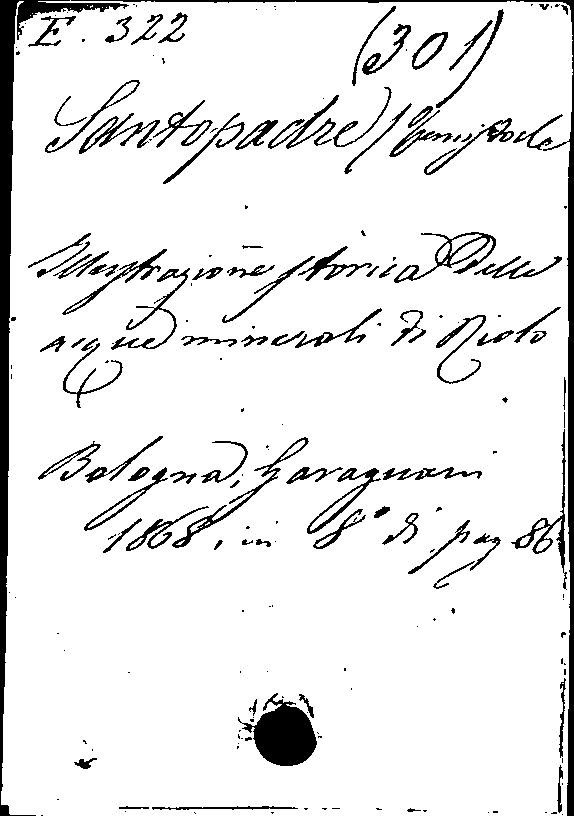 E. 322 (301)
Santopadre, Temistocle
Illustrazione storica delle
acque minerali di Riolo
Bologna, Garagnani
1868, in 8° di pag 86